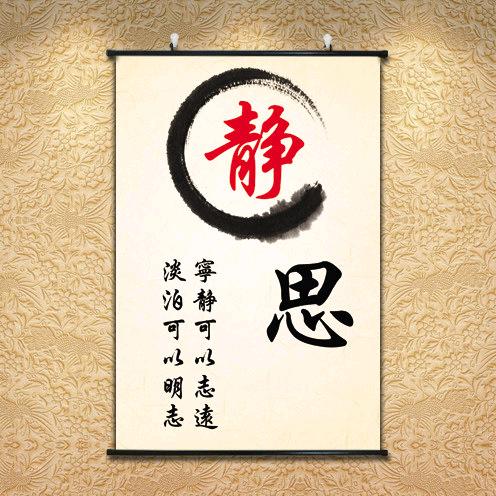 静
思
寧静可以志遠
淡泊可以明志